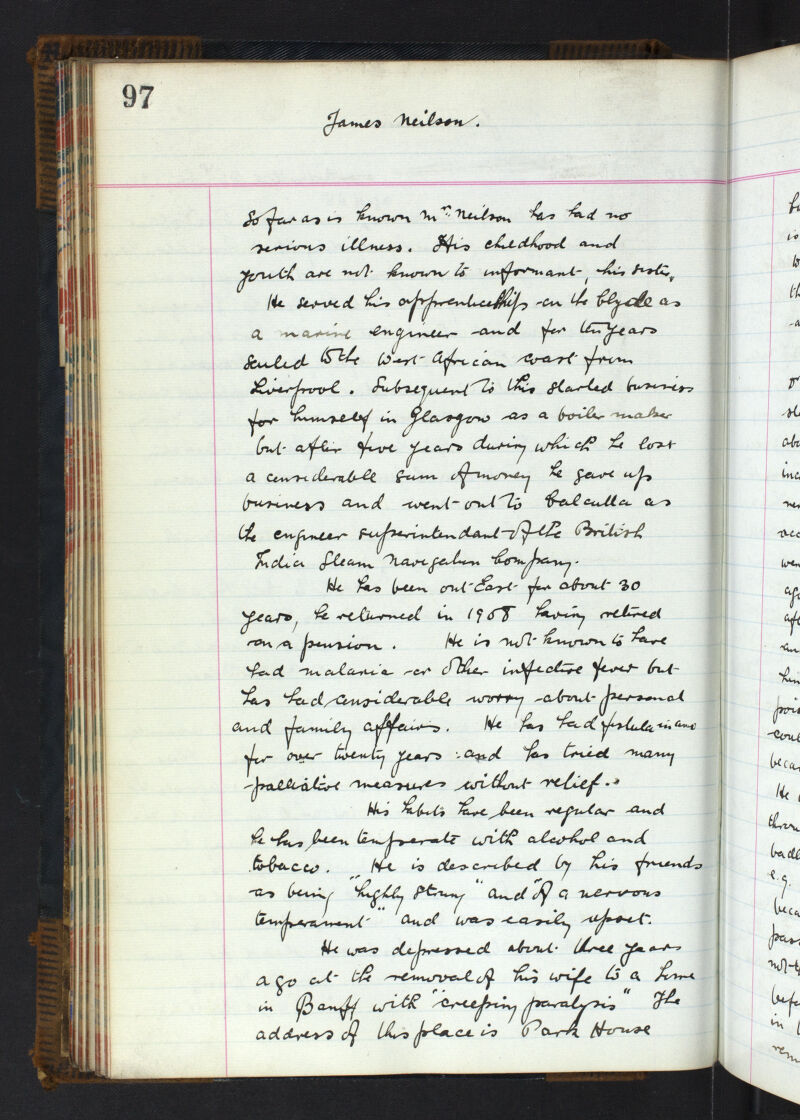 97
James Neilson.
So far as is known Mr. Neilson has had no
serious illness. His childhood and
youth are not known to informant, his sister.
He served his apprenticeship on the Clyde as
a marine engineer and for ten years
sailed to the West African coast from
Liverpool. Subsequent to this started business
for himself in Glasgow as a boiler maker
but after five years during which he lost
a considerable sum of money he gave up
business and went out to Calcutta as
the engineer superintendant of the British
India Steam Navigation Company.
He has been out East for about 30
years, he returned in 1908 having retired
on a pension. He is not known to have
had malaria or other infective fever but
has had considerable worry about personal
and family affairs. He has had fistula in ano
for over twenty years and has tried many
palliative measures without relief.
His habits have been regular and
he has been temperate with alcohol and
tobacco. He is described by his friends
as being "highly strung" and "of a nervous
temperament" and was easily upset.
He was depressed about three years
ago at the removal of his wife to a home
in Banff with "creeping paralysis" The
address of this place is Park House